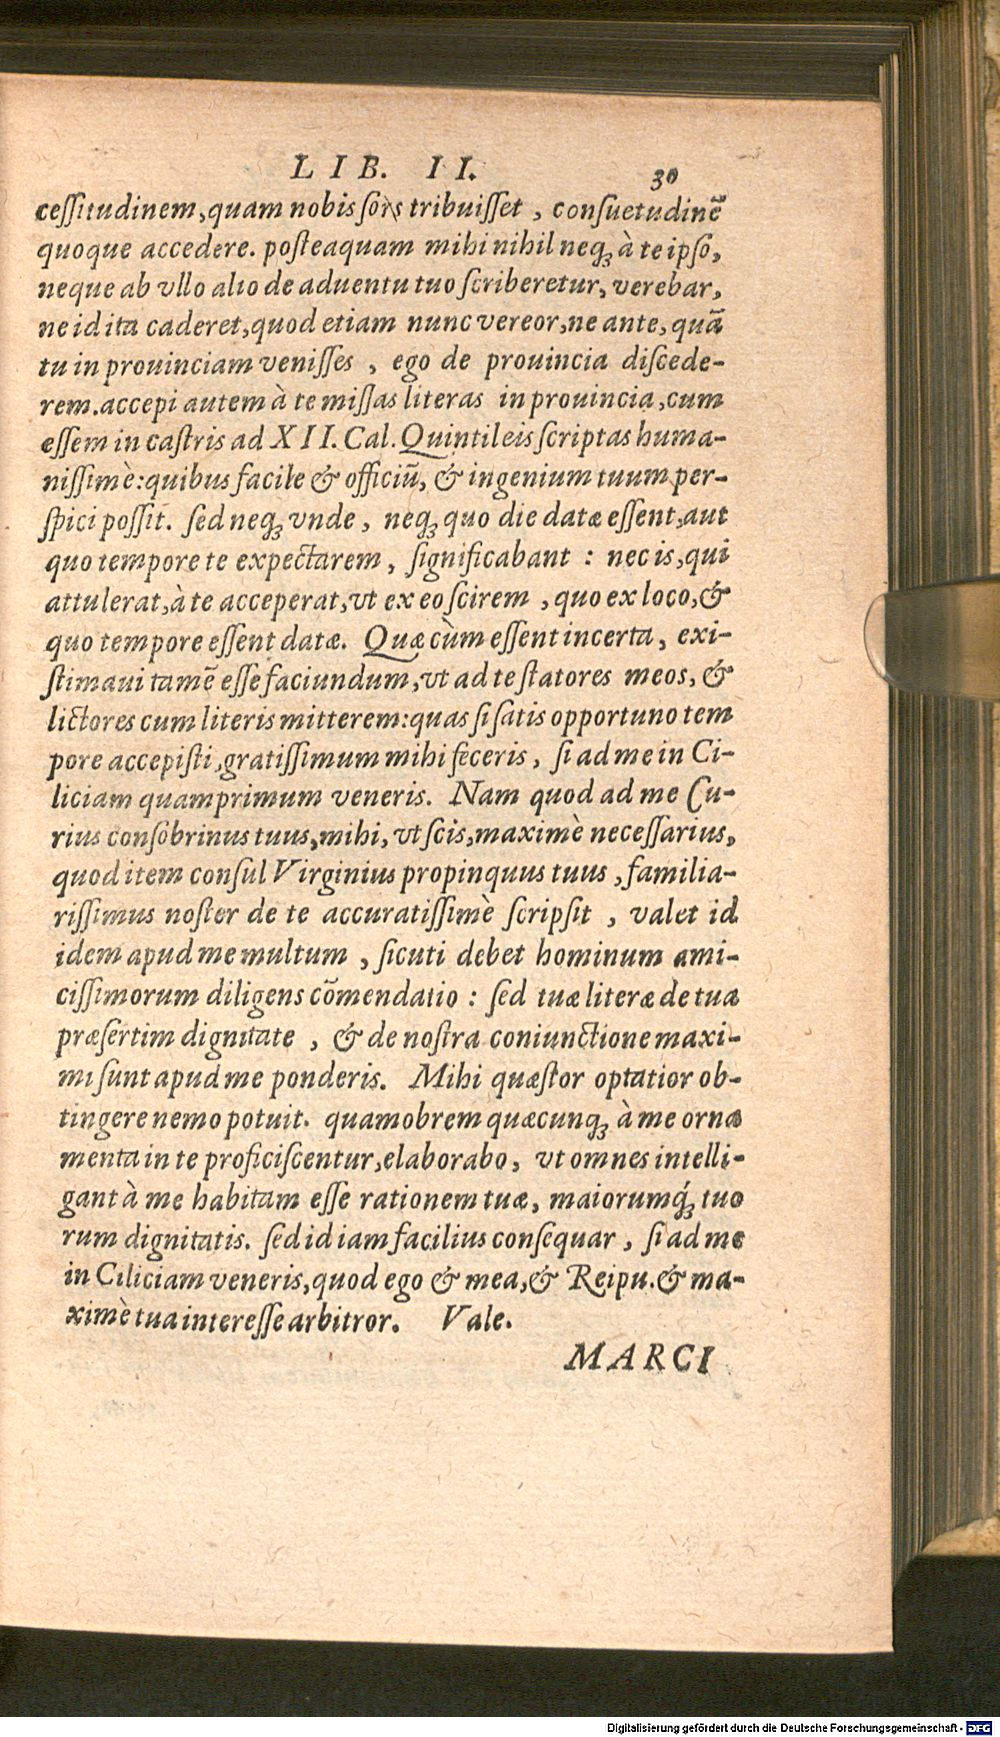 LIB. II. 30
ceſſitudinem, quam nobis ſors tribuiſſet, conſuetudinē
quoque accedere. poſteaquam mihi nihil neqꝫ à te ipſo,
neque ab vllo alio de aduentu tuo ſcriberetur, verebar,
ne id ita caderet, quod etiam nunc vereor, ne ante, quā
tu in prouinciam veniſſes, ego de prouincia diſcede-
rem. accepi autem à te miſſas literas in prouincia, cum
eſſem in caſtris ad XII. Cal. Quintileis ſcriptas huma-
niſſimè: quibus facile & officiū, & ingenium tuum per-
ſpici poſſit. ſed neqꝫ vnde, neqꝫ quo die datæ eſſent, aut
quo tempore te expectarem, ſignificabant: nec is, qui
attulerat, à te acceperat, vt ex eo ſcirem, quo ex loco, &
quo tempore eſſent datæ. Quæ cùm eſſent incerta, exi-
ſtimaui tamē eſſe faciundum, vt ad te ſtatores meos, &
lictores cum literis mitterem: quas ſi ſatis opportuno tem
pore accepiſti, gratiſſimum mihi feceris, ſi ad me in Ci-
liciam quamprimum veneris. Nam quod ad me Cu-
rius conſobrinus tuus, mihi, vt ſcis, maximè neceſſarius,
quod item conſul Virginius propinquus tuus, familia-
riſſimus noſter de te accuratiſſimè ſcripſit, valet id
idem apud me multum, ſicuti debet hominum ami-
ciſſimorum diligens cōmendatio: ſed tuæ literæ de tua
præſertim dignitate, & de noſtra coniunctione maxi-
mi ſunt apud me ponderis. Mihi quæſtor optatior ob-
tingere nemo potuit. quamobrem quæcunqꝫ à me orna
menta in te proficiſcentur, elaborabo, vt omnes intelli-
gant à me habitam eſſe rationem tuæ, maiorumq́ꝫ tuo
rum dignitatis. ſed id iam facilius conſequar, ſi ad me
in Ciliciam veneris, quod ego & mea, & Reipu. & ma-
ximè tua intereſſe arbitror. Vale.
MARCI
Digitalisierung gefördert durch die Deutsche Forschungsgemeinschaft - DFG